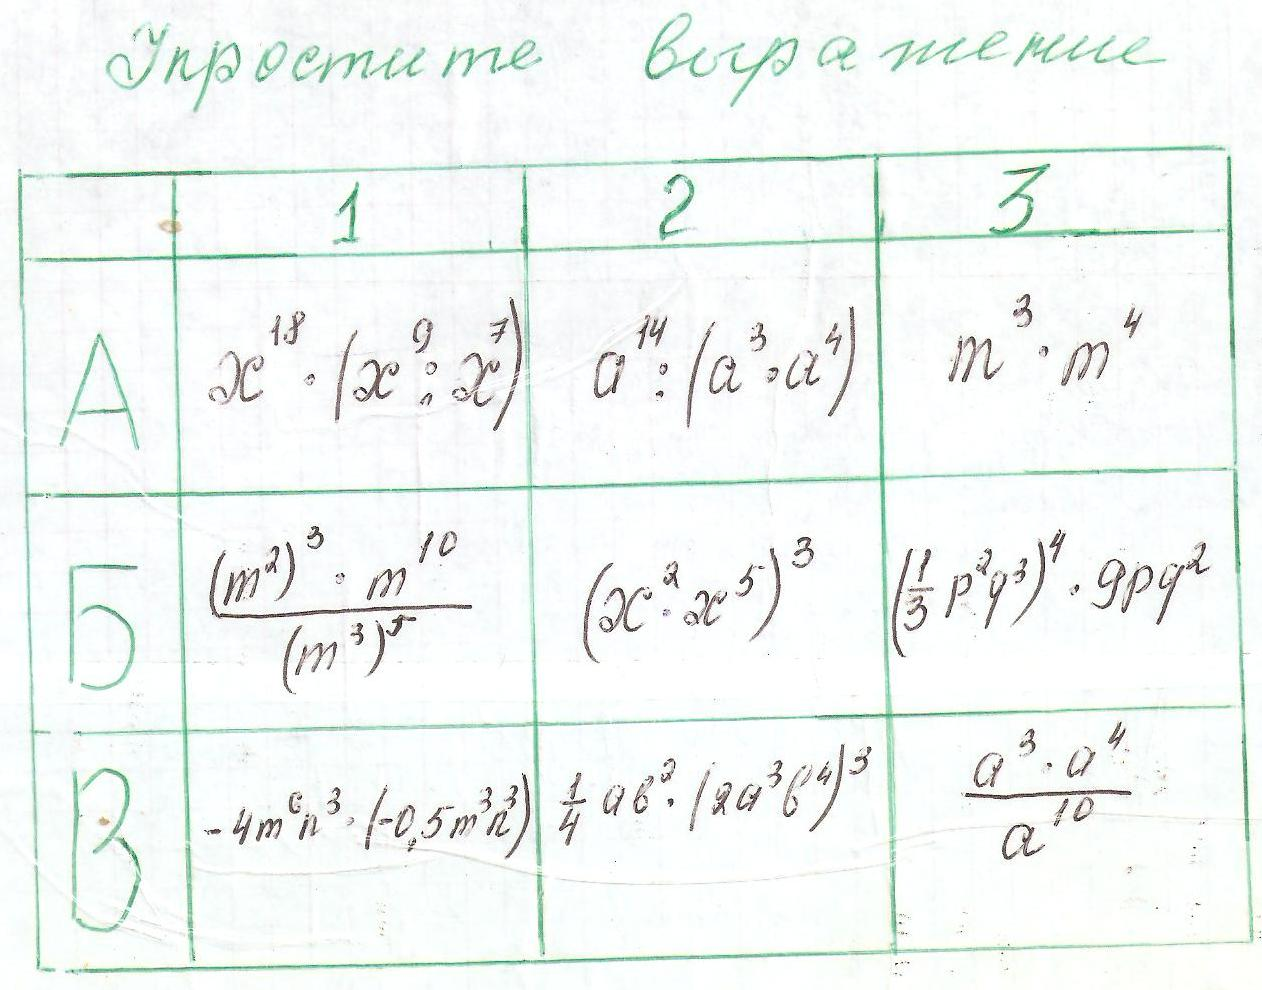 Упростите выражение
1 2 3
А x¹⁸ · (x⁹ : x⁷) a¹⁴ : (a³ · a⁴) m³ · m⁴
Б (m²)³ · m¹⁰ / (m³)⁵ (x² · x⁵)³ (1/3 p²q³)⁴ · 9pq²
В -4m⁶n³ · (-0,5m³n³) 1/4 ab² · (2a³b⁴)³ a³ · a⁴ / a¹⁰